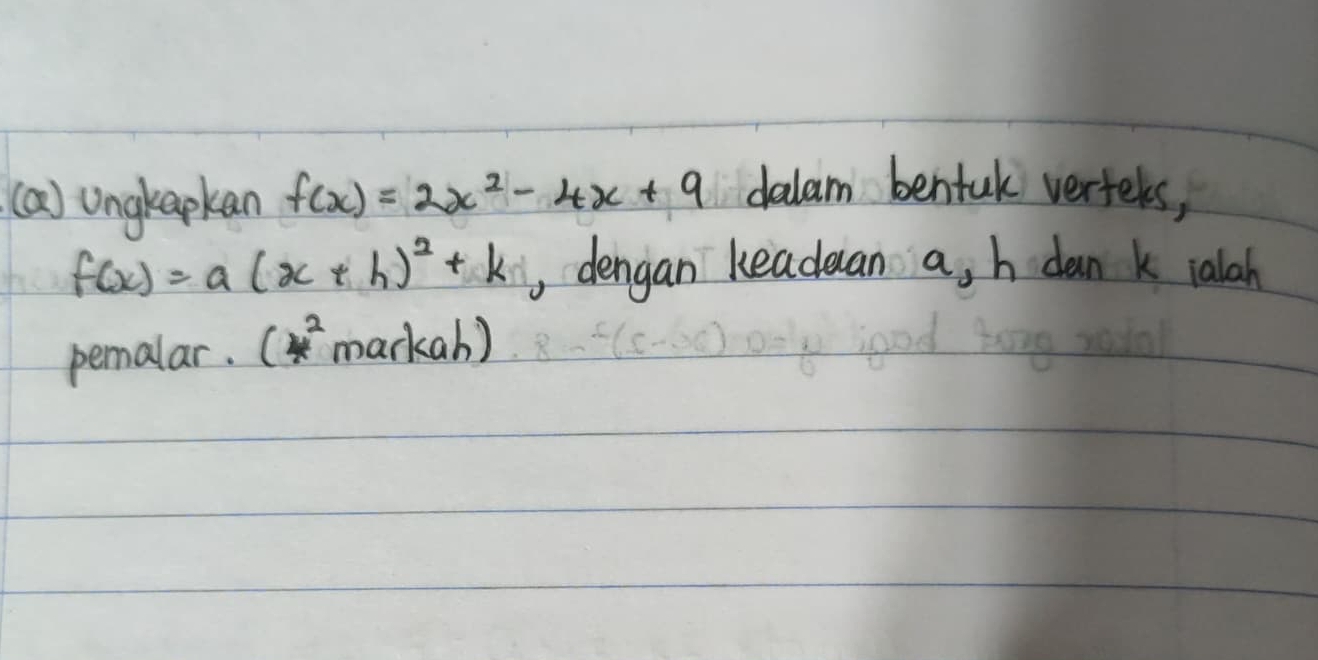 (a) Ungkapkan f(x) = 2x² - 4x + 9 dalam bentuk verteks,
f(x) = a (x + h)² + k, dengan keadaan a, h dan k ialah
pemalar. (2 markah)